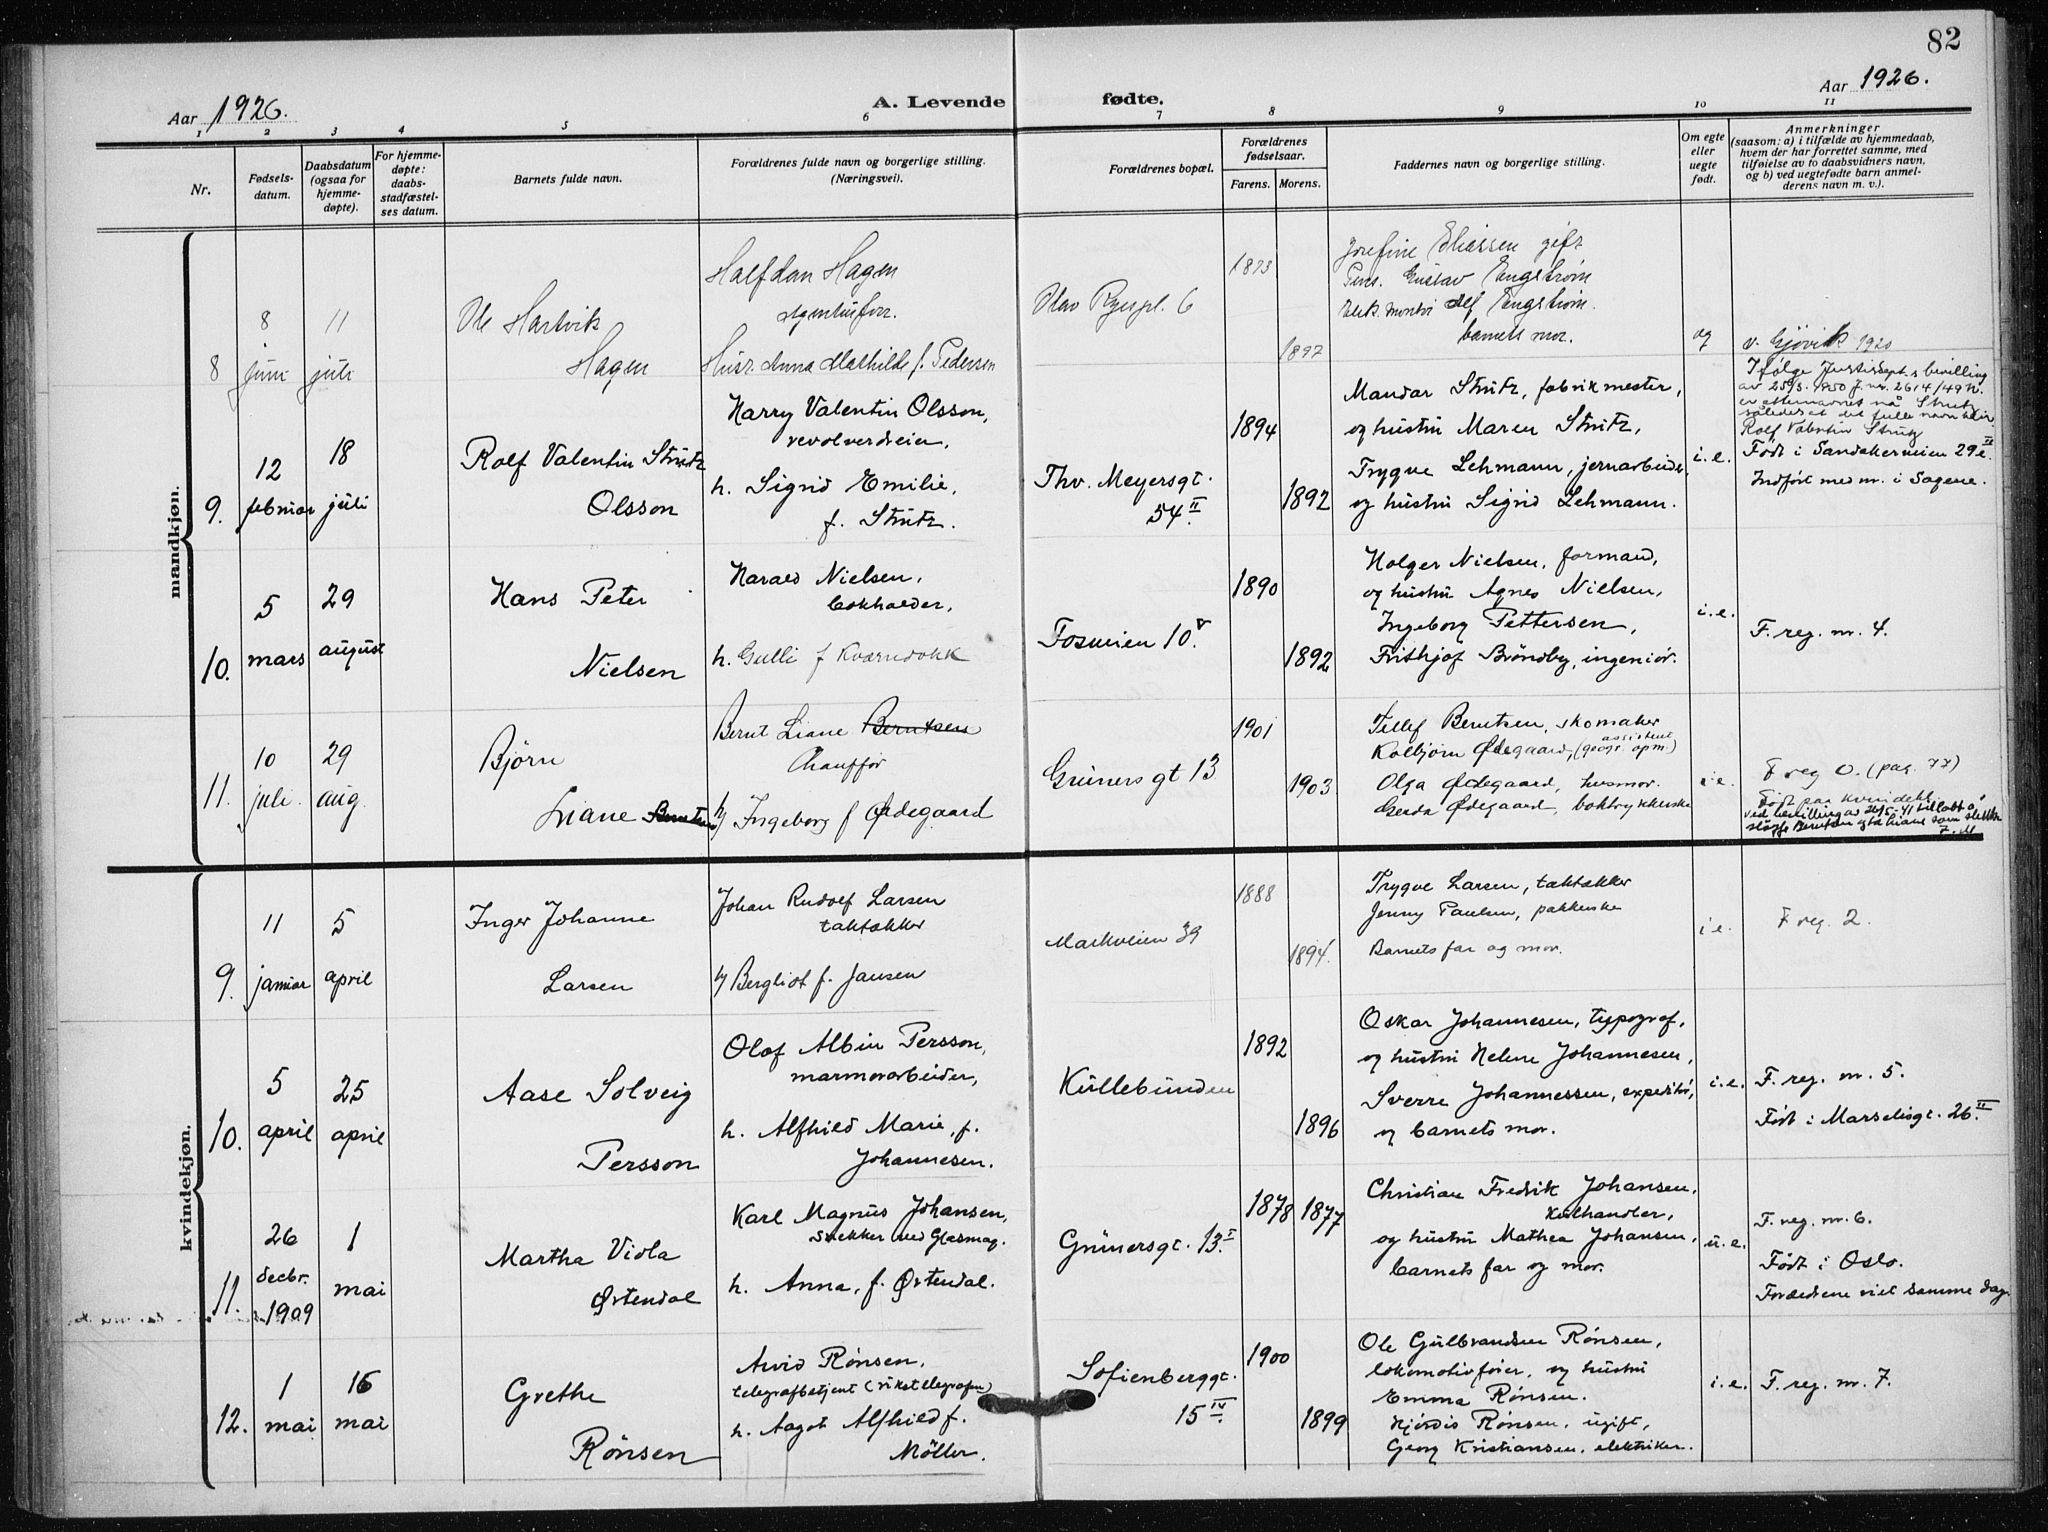 82
Aar 1926.
A. Levende fødte.
Aar 1926.
1 2 3 4 5 6 7 8 9 10 11
Nr.
Fødsels-
datum.
Daabsdatum
(ogsaa for
hjemme-
døpte).
For hjemme-
døpte:
daabs-
stadfæstel-
ses datum.
Barnets fulde navn.
Forældrenes fulde navn og borgerlige stilling.
(Næringsvei).
Forældrenes bopæl.
Forældrenes
fødselsaar.
Farens. Morens.
Faddernes navn og borgerlige stilling.
Om egte
eller
uegte
født.
Anmerkninger
(saasom: a) i tilfælde av hjemmedaab,
hvem der har forrettet samme, med
tilføielse av to daabsvidners navn,
og b) ved uegtefødte barn anmel-
derens navn m. v.).
mandkjøn.
8
8
juni
11
juli
Ole Hartvik
Hagen
Halfdan Hagen
Husr. Anna Mathilde f. Pedersen
Olav Ryespl. 6
1897
Josefine Eliassen gift
Gustav Engstrøm
Engstrøm.
barnets mor.
v. Gjøvik 1920
9.
12
februar
18
juli
Rolf Valentin Strutz
Olsson
Harry Valentin Olsson,
revolverdreier,
h. Sigrid Emilie,
f. Strutz.
Thv. Meyersgt.
54 II.
1894
1892
Mandar Strutz, fabrikmester,
og hustru Maren Strutz,
Trygve Lehmann, jernarbeider,
og hustru Sigrid Lehmann.
i.e.
Ifølge Justisdept.s bevilling
er etternavnet nå Strutz
således at det fulle navn blir
Rolf Valentin Strutz
Født i Sandakerveien 29 II
Indført med nr. i Sagene.
10.
5
mars
29
august
Hans Peter
Nielsen
Harald Nielsen,
bokholder,
h. Gulli f Kværndokk
Fosveien 10 V.
1890
1892
Holger Nielsen, formand,
og hustru Agnes Nielsen,
Ingeborg Pettersen,
Frithjof Brøndby, ingeniør.
i.e.
F. reg. nr. 4.
11.
10
juli
29
aug.
Bjørn
Liane Berntsen
Bernt Liane Berntsen
Chauffør
h/ Ingeborg f Ødegaard
Grüners gt 13
1901
1903
Tellef Berntsen, skomaker
Kolbjørn Ødegaard, assistent (geogr. opm.)
Olga Ødegaard, husmor.
Gerda Ødegaard, boktrykkerske
i.e.
F reg 0. (pag. 77)
Født paa kvindekl.
ved bevilling av 26/5-41 tillatt å
sløyfe Berntsen og ta Liane som slektsn.
kvindekjøn.
9.
11
januar
5
april
Inger Johanne
Larsen
Johan Rudolf Larsen
taktækker
h/ Bergliot f. Jansen
Markveien 39
1888
1894.
Trygve Larsen, taktækker
Jenny Paulsen, pakkerske
Barnets far og mor.
i e.
F reg. 2.
10.
5
april
25
april
Aase Solveig
Persson
Olof Albin Persson,
marmorarbeider,
h. Alfhild Marie, f.
Johannesen.
Kullebunden
1892
1896
Oskar Johannesen, typograf,
og hustru Helene Johannesen,
Sverre Johannessen, expeditør,
og barnets mor.
i.e.
F. reg. nr. 5.
Født i Marselisgt. 26 II.
11.
26
decbr.
1909
1
mai
Martha Viola
Østendal
Karl Magnus Johansen,
snekker ved Glasmag.
h. Anna, f. Østendal.
Grünersgt. 13 I.
1878
1877
Christian Fredrik Johansen,
kulhandler,
og hustru Mathea Johansen,
barnets far og mor.
u.e.
F. reg. nr. 6.
Født i Oslo.
Forældrene viet samme dag.
12.
1
mai
16
mai
Grethe
Rønsen
Arvid Rønsen,
telegrafbetjent (rikstelegrafen)
h. Aagot Alfhild f.
Møller.
Sofienberggt.
15 IV.
1900
1899
Ole Gulbrandsen Rønsen,
lokomotivfører, og hustru
Emma Rønsen.
Hjørdis Rønsen, ugift,
Georg Kristiansen, elektriker.
i.e.
F. reg. nr. 7.